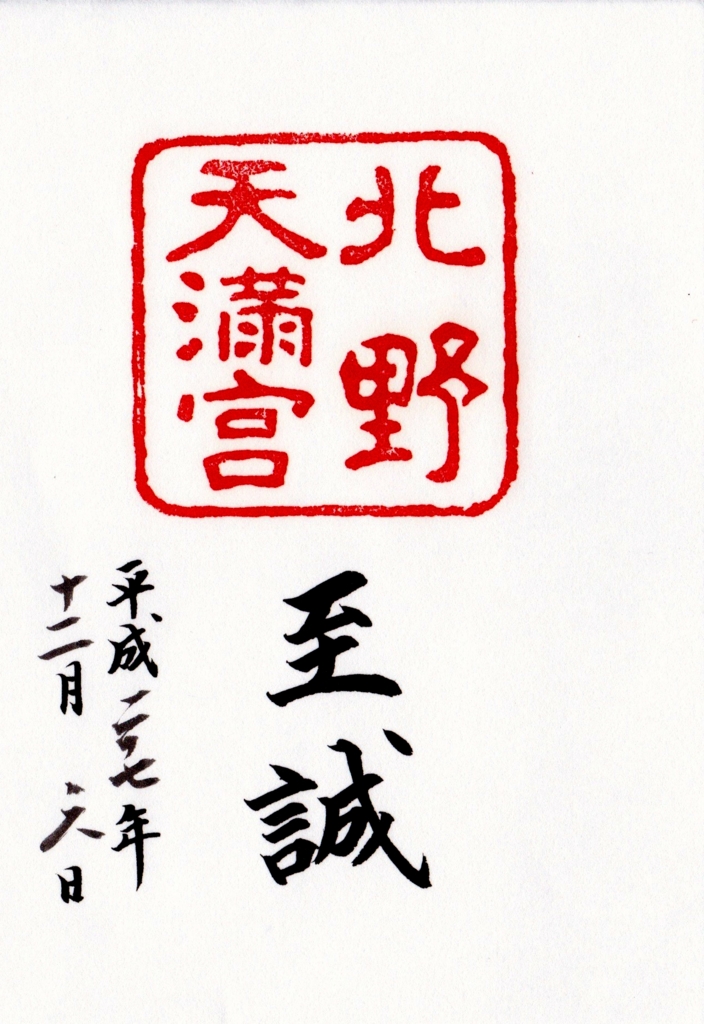 北野
天満宮
至誠
平成二十七年
十二月六日